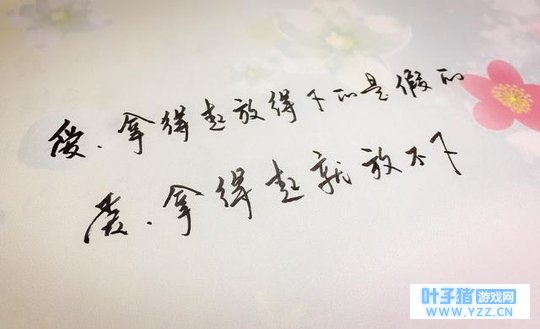 爱、拿得起放得下的是假的
爱、拿得起就放不下
叶子猪游戏网
WWW.YZZ.CN